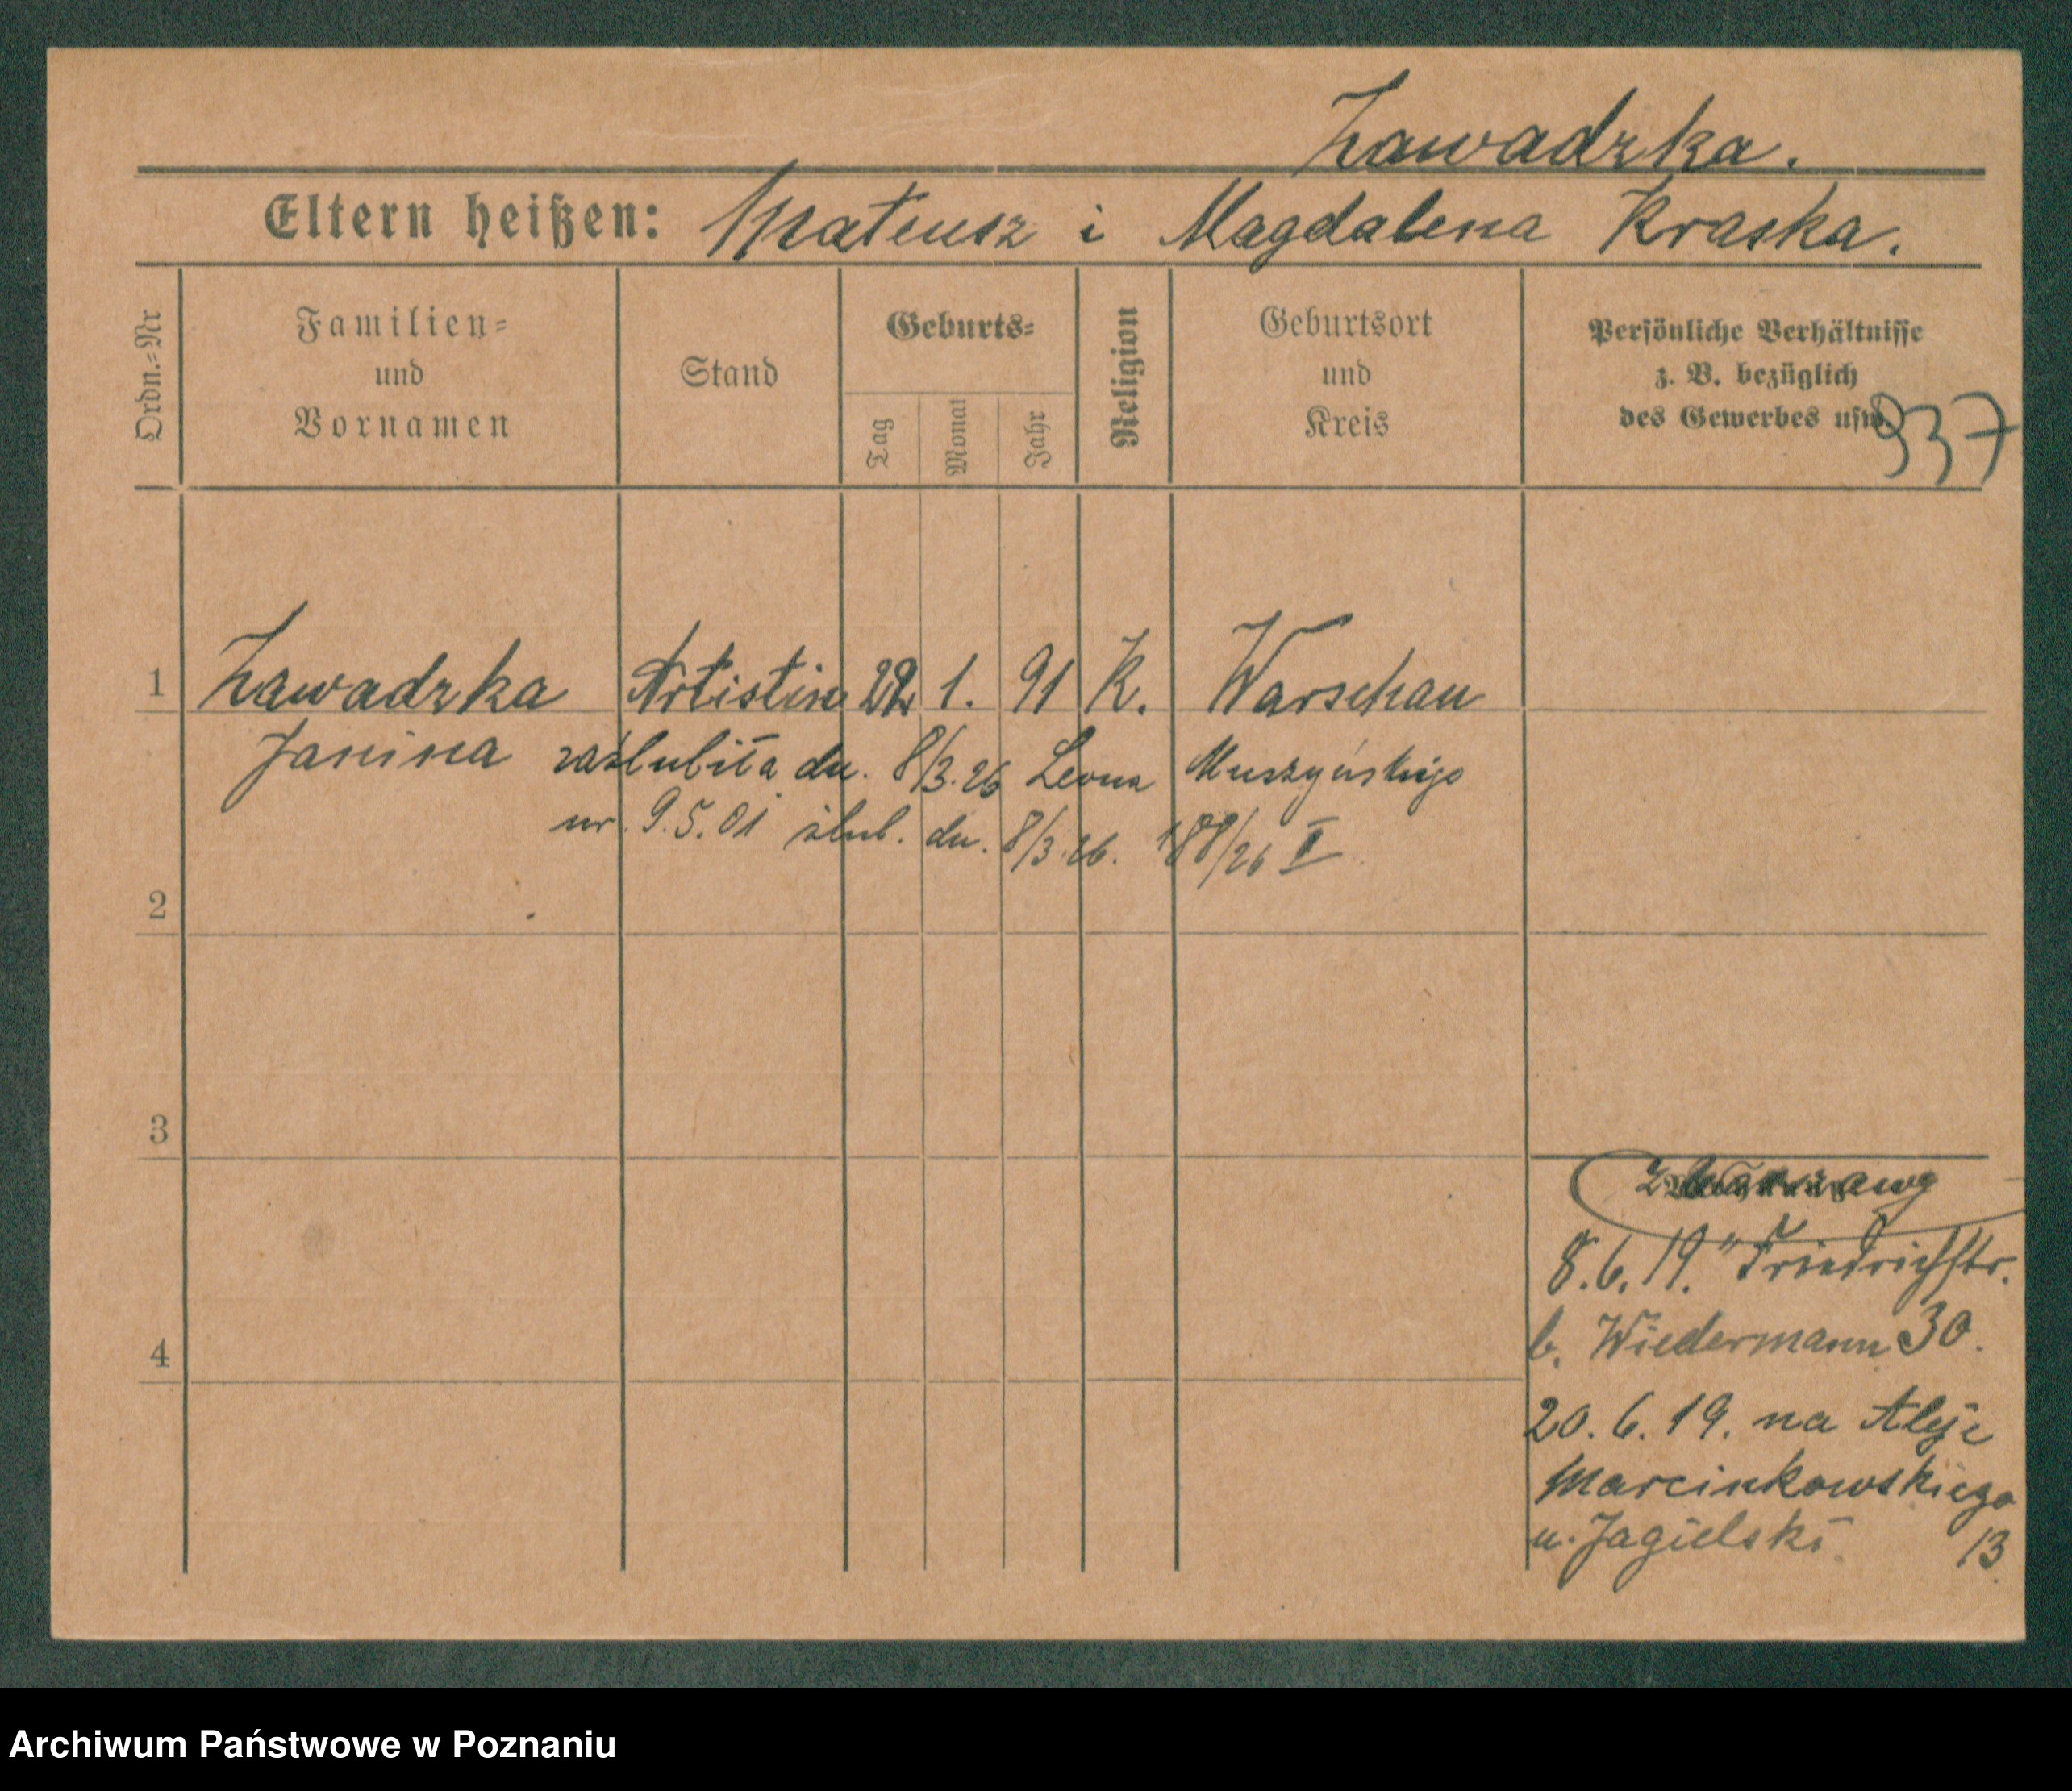 Zawadzka.
Eltern heißen: Mateusz i Magdalena Kraska.
Ordn.=Nr
Familien=
und
Vornamen
Stand
Geburts=
Tag
Monat
Jahr
Religion
Geburtsort
und
Kreis
Persönliche Verhältnisse
z. B. bezüglich
des Gewerbes usw.
937
1 Zawadzka Artistin 22 1. 91 K. Warschau
Janina zaślubiła dn. 8/3.26 Leona Muszyńskiego
ur. 9.5.01 ślub. dn. 8/3.26. 188/26 II
2
3
8.6.19. Friedrichstr.
4
b. Wiedermann 30.
20.6.19. na Aleje
Marcinkowskiego
u. Jagielski 13
Archiwum Państwowe w Poznaniu